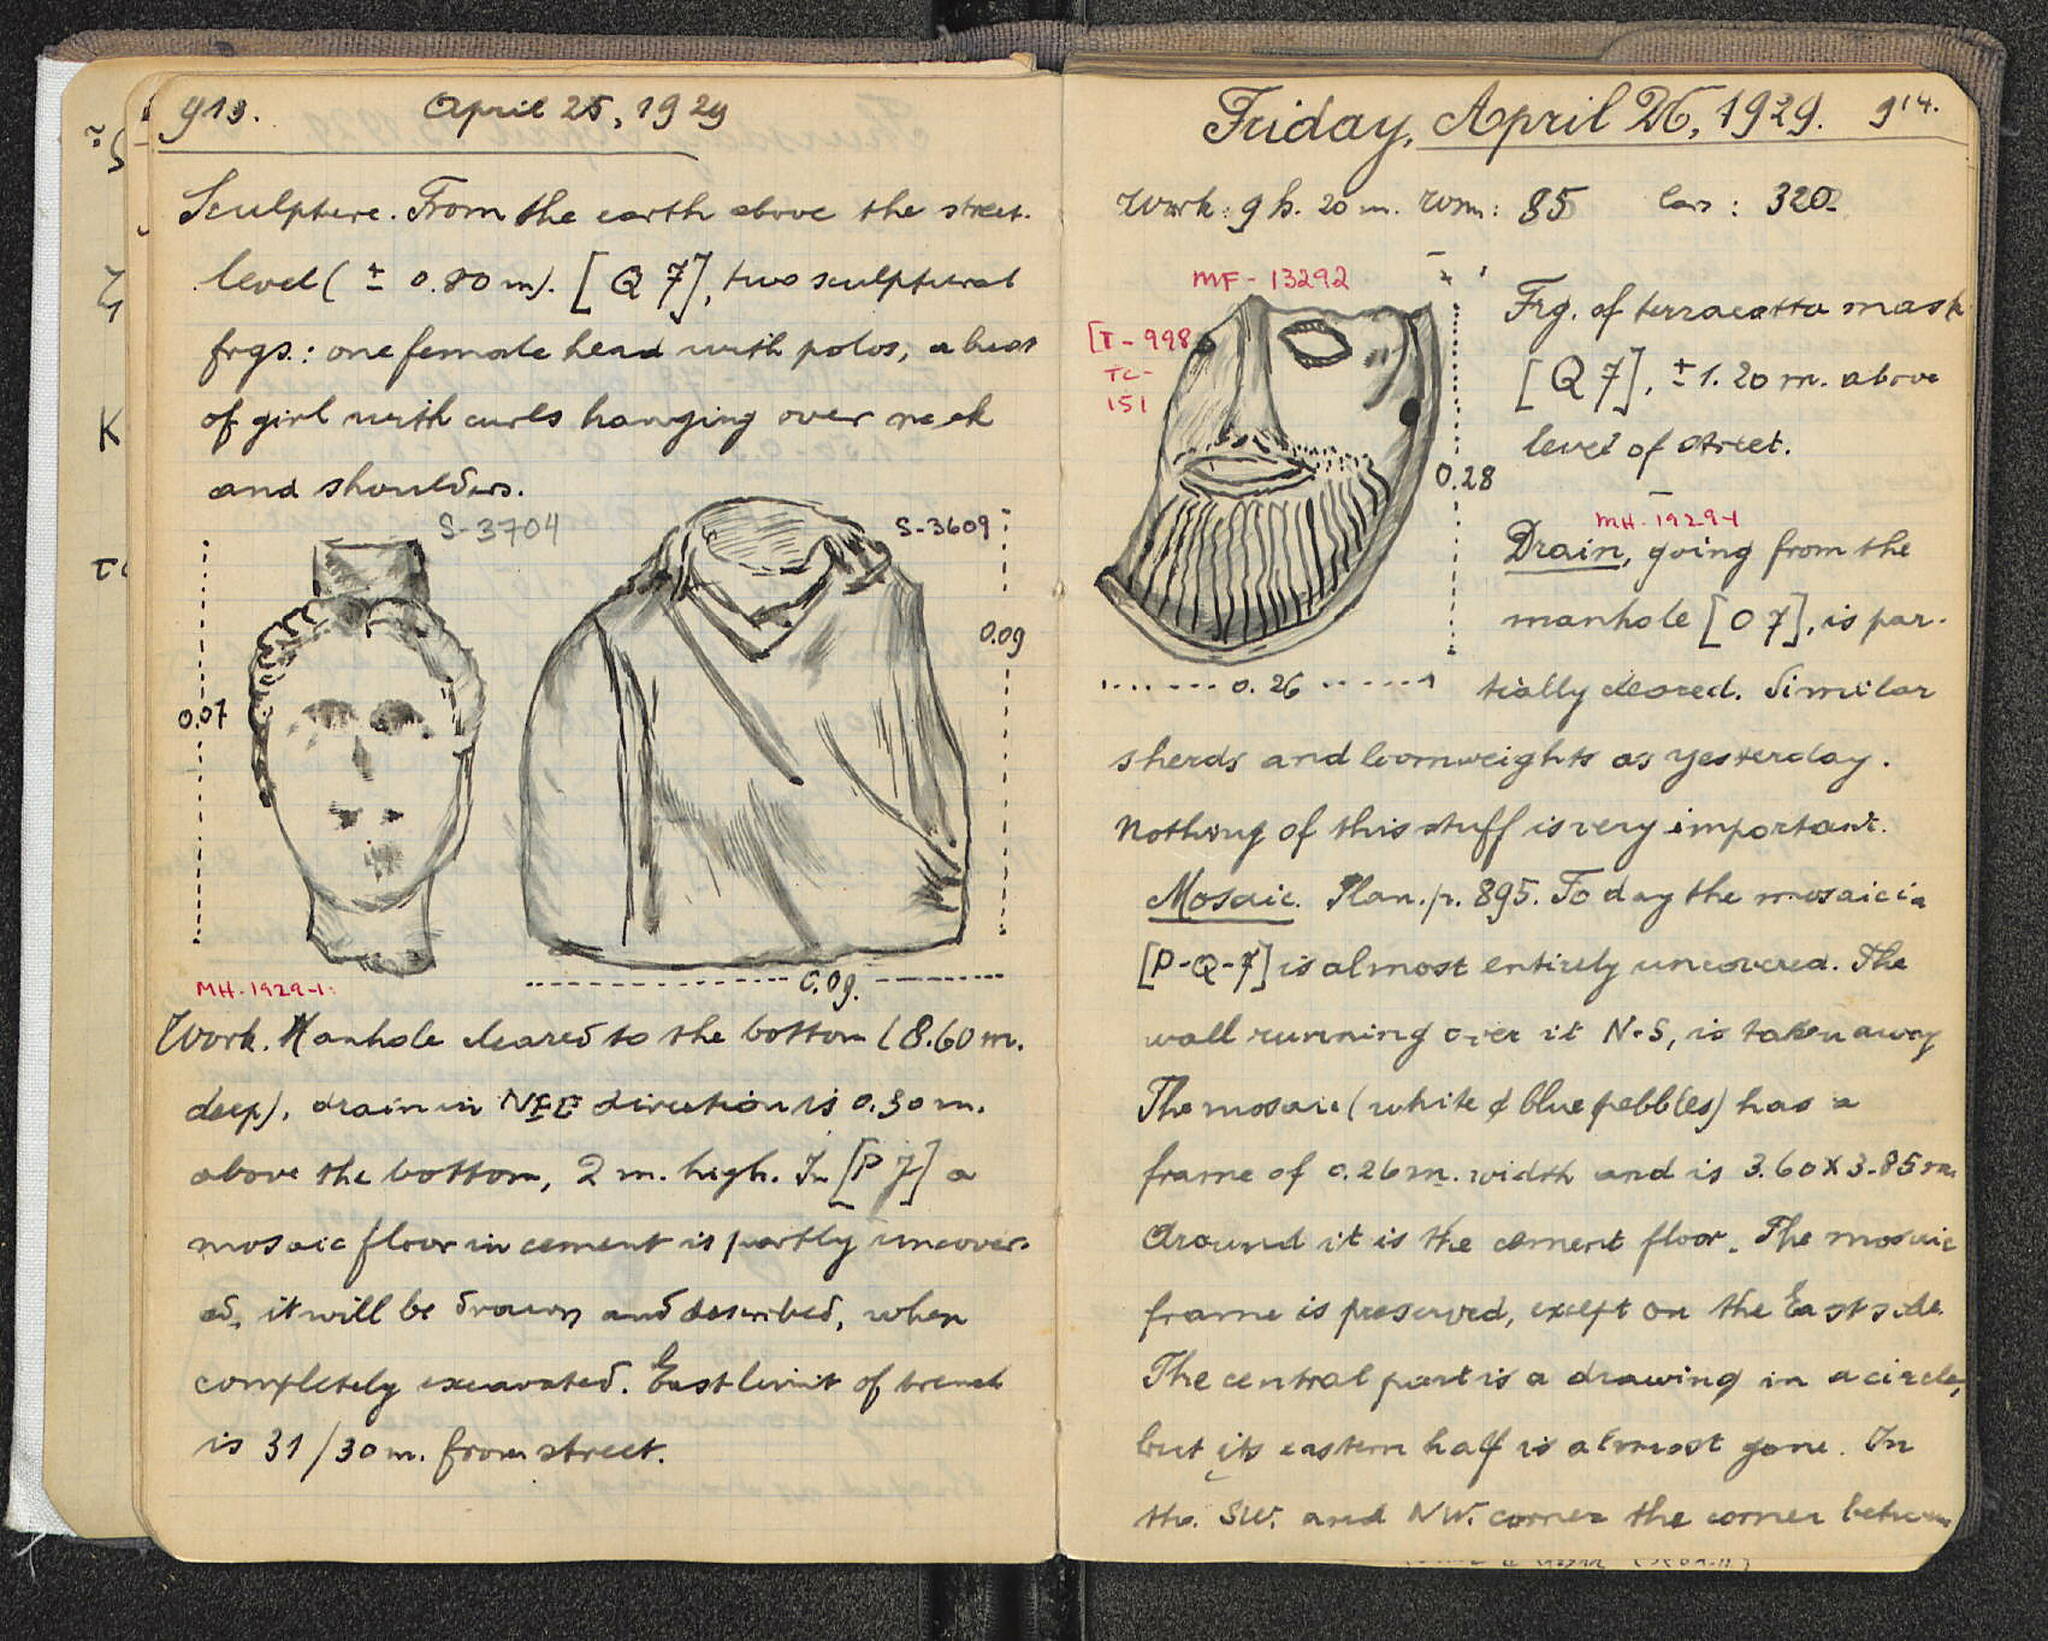 913. April 25, 1929
Sculpture. From the earth above the street.
level (± 0.80 m). [Q 7], two sculptural
frgs.: one female head with polos, a bust
of girl with curls hanging over neck
and shoulders.
S-3704
S-3609
0.07
0.09
0.09.
MH-1929-1:
Work. Manhole cleared to the bottom (8.60 m.
deep), drain in NEE direction is 0.30 m.
above the bottom, 2 m. high. In [P 7] a
mosaic floor in cement is partly uncover-
ed, it will be drawn and described, when
completely excavated. East limit of trench
is 31/30 m. from street.
Friday, April 26, 1929. 914.
Work: 9 h. 20 m. Wrm: 85 Cars: 320
MF-13292
[T-998
TC-
151
0.28
0.26
Frg. of terracotta mask
[Q 7], ± 1.20 m. above
level of street.
MH-1929-1
Drain, going from the
manhole [O 7], is par-
tially cleared. Similar
sherds and loomweights as yesterday.
Nothing of this stuff is very important.
Mosaic. Plan. p. 895. To day the mosaic in
[P-Q-7] is almost entirely uncovered. The
wall running over it N-S, is taken away
The mosaic (white & blue pebbles) has a
frame of 0.26 m. width and is 3.60 X 3.85 m.
Around it is the cement floor. The mosaic
frame is preserved, exept on the East side.
The central part is a drawing in a circle,
but its eastern half is almost gone. In
the SW. and NW. corner the corner between